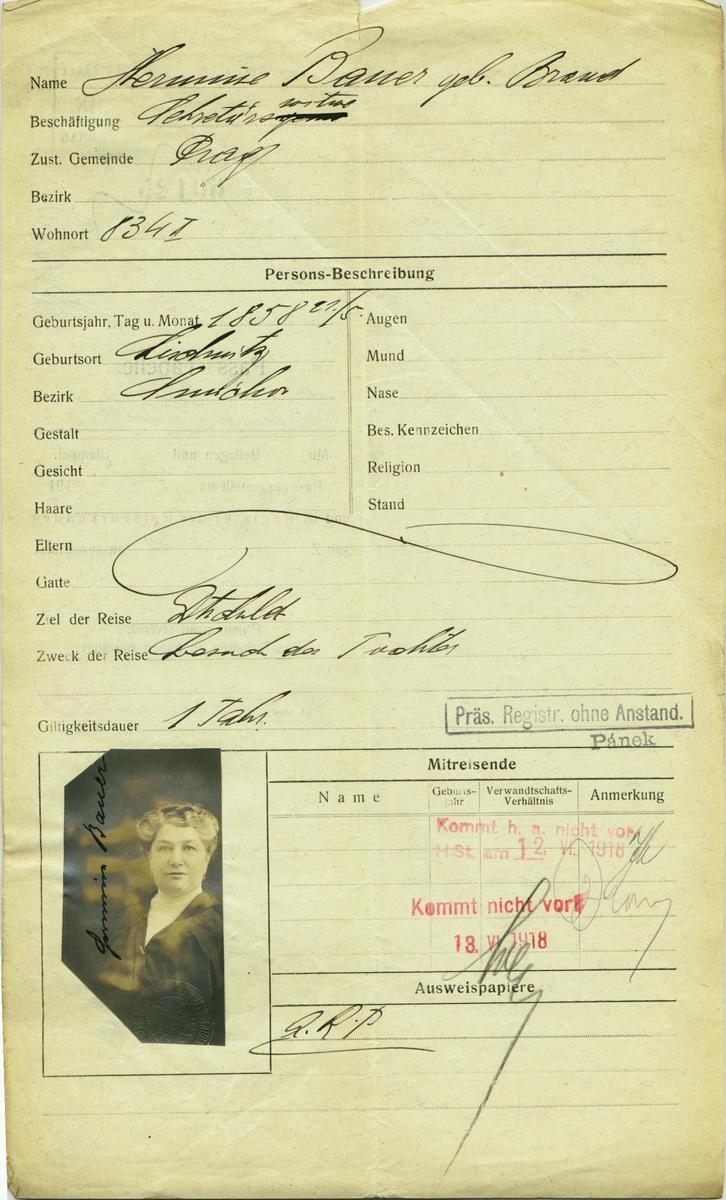 Name Hermine Bauer geb. Brand
Beschäftigung Sekretärswitwe
Zust. Gemeinde Prag
Bezirk
Wohnort 834 II
Persons-Beschreibung
Geburtsjahr, Tag u. Monat 1858 21/5. Augen
Geburtsort Mund
Bezirk Smichov Nase
Gestalt Bes. Kennzeichen
Gesicht Religion
Haare Stand
Eltern
Gatte
Ziel der Reise Dtschld
Zweck der Reise Besuch der Tochter
Giltigkeitsdauer 1 Jahr.
Präs. Registr. ohne Anstand.
Pánek
Mitreisende
Name Geburts-jahr Verwandtschafts-Verhältnis Anmerkung
Kommt h. a. nicht vor
H.St. am 12. VI. 1918
Kommt nicht vor!
13. VI. 1918
Ausweispapiere
Hermine Bauer